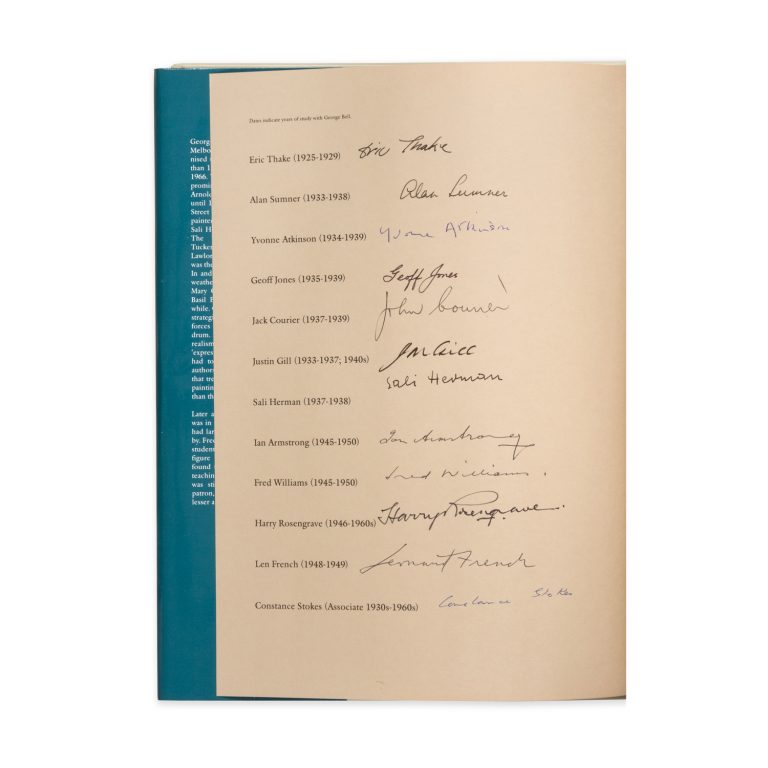 Dates indicate years of study with George Bell.
Eric Thake (1925-1929) Eric Thake
Alan Sumner (1933-1938) Alan Sumner
Yvonne Atkinson (1934-1939) Yvonne Atkinson
Geoff Jones (1935-1939) Geoff Jones
Jack Courier (1937-1939) John Courier
Justin Gill (1933-1937; 1940s) J M Gill
Sali Herman
Sali Herman (1937-1938)
Ian Armstrong (1945-1950) Ian Armstrong
Fred Williams (1945-1950) Fred Williams.
Harry Rosengrave (1946-1960s) Harry Rosengrave.
Len French (1948-1949) Leonard French
Constance Stokes (Associate 1930s-1960s) Constance Stokes
George
Melbo
nised
than 1
1966.
promi
Arnold
until 1
Street
painte
Sali H
The
Tucker
Lawlor
was the
In and
weathe
Mary
Basil
while.
strategi
forces
drum.
realism
'expres
had to
author
that tre
paintin
than th
Later a
was in
had lar
by. Fred
student
figure
found
teachin
was sti
patron,
lesser a